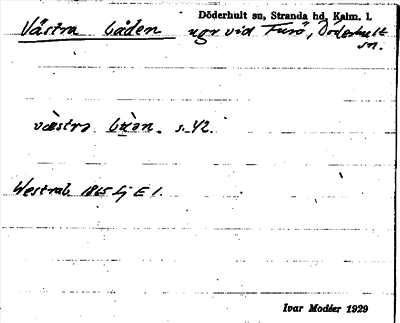 Döderhult sn, Stranda hd, Kalm. l.
Västra båden ugr vid Furö, Döderhult
sn.
væstra s. 42.
Westrab. 1865 Sj E 1.
Ivar Modéer 1929